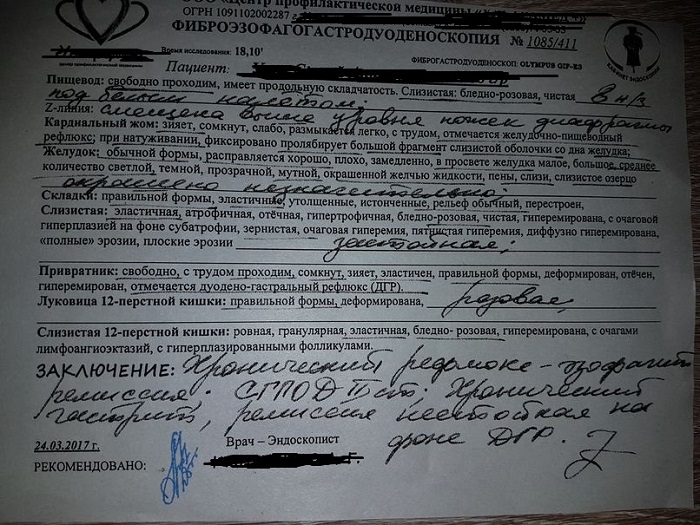 ООО «Центр профилактической медицины
ОГРН 1091102002287
ФИБРОЭЗОФАГОГАСТРОДУОДЕНОСКОПИЯ № 1085/411
Время исследования: 18,10' ФИБРОГАСТРОДУОДЕНОСКОП: OLYMPUS GIF-E3
КАБИНЕТ ЭНДОСКОПИИ
Пациент:
Пищевод: свободно проходим, имеет продольную складчатость. Слизистая: бледно-розовая, чистая в н/з
под белым налетом;
Z-линия: смещена выше уровня ножек диафрагмы
Кардиальный жом: зияет, сомкнут, слабо, размыкается легко, с трудом, отмечается желудочно-пищеводный
рефлюкс; при натуживании, фиксировано пролябирует большой фрагмент слизистой оболочки со дна желудка;
Желудок: обычной формы, расправляется хорошо, плохо, замедленно, в просвете желудка малое, большое, среднее
количество светлой, темной, прозрачной, мутной, окрашенной желчью жидкости, пены, слизи, слизистое озерцо
окрашено незначительно;
Складки: правильной формы, эластичные, утолщенные, истонченные, рельеф обычный, перестроен,
Слизистая: эластичная, атрофичная, отёчная, гипертрофичная, бледно-розовая, чистая, гиперемирована, с очаговой
гиперплазией на фоне субатрофии, зернистая, очаговая гиперемия, пятнистая гиперемия, диффузно гиперемирована,
«полные» эрозии, плоские эрозии застойная;
Привратник: свободно, с трудом проходим, сомкнут, зияет, эластичен, правильной формы, деформирован, отёчен,
гиперемирован, отмечается дуодено-гастральный рефлюкс (ДГР).
Луковица 12-перстной кишки: правильной формы, деформирована, розовая,
Слизистая 12-перстной кишки: ровная, гранулярная, эластичная, бледно- розовая, гиперемирована, с очагами
лимфоангиоэктазий, с гиперплазированными фолликулами.
ЗАКЛЮЧЕНИЕ: Хронический рефлюкс-эзофагит
ремиссия; СГПОД II ст; Хронический
гастрит, ремиссия нестойкая на
фоне ДГР.
24.03.2017 г. Врач – Эндоскопист
РЕКОМЕНДОВАНО: